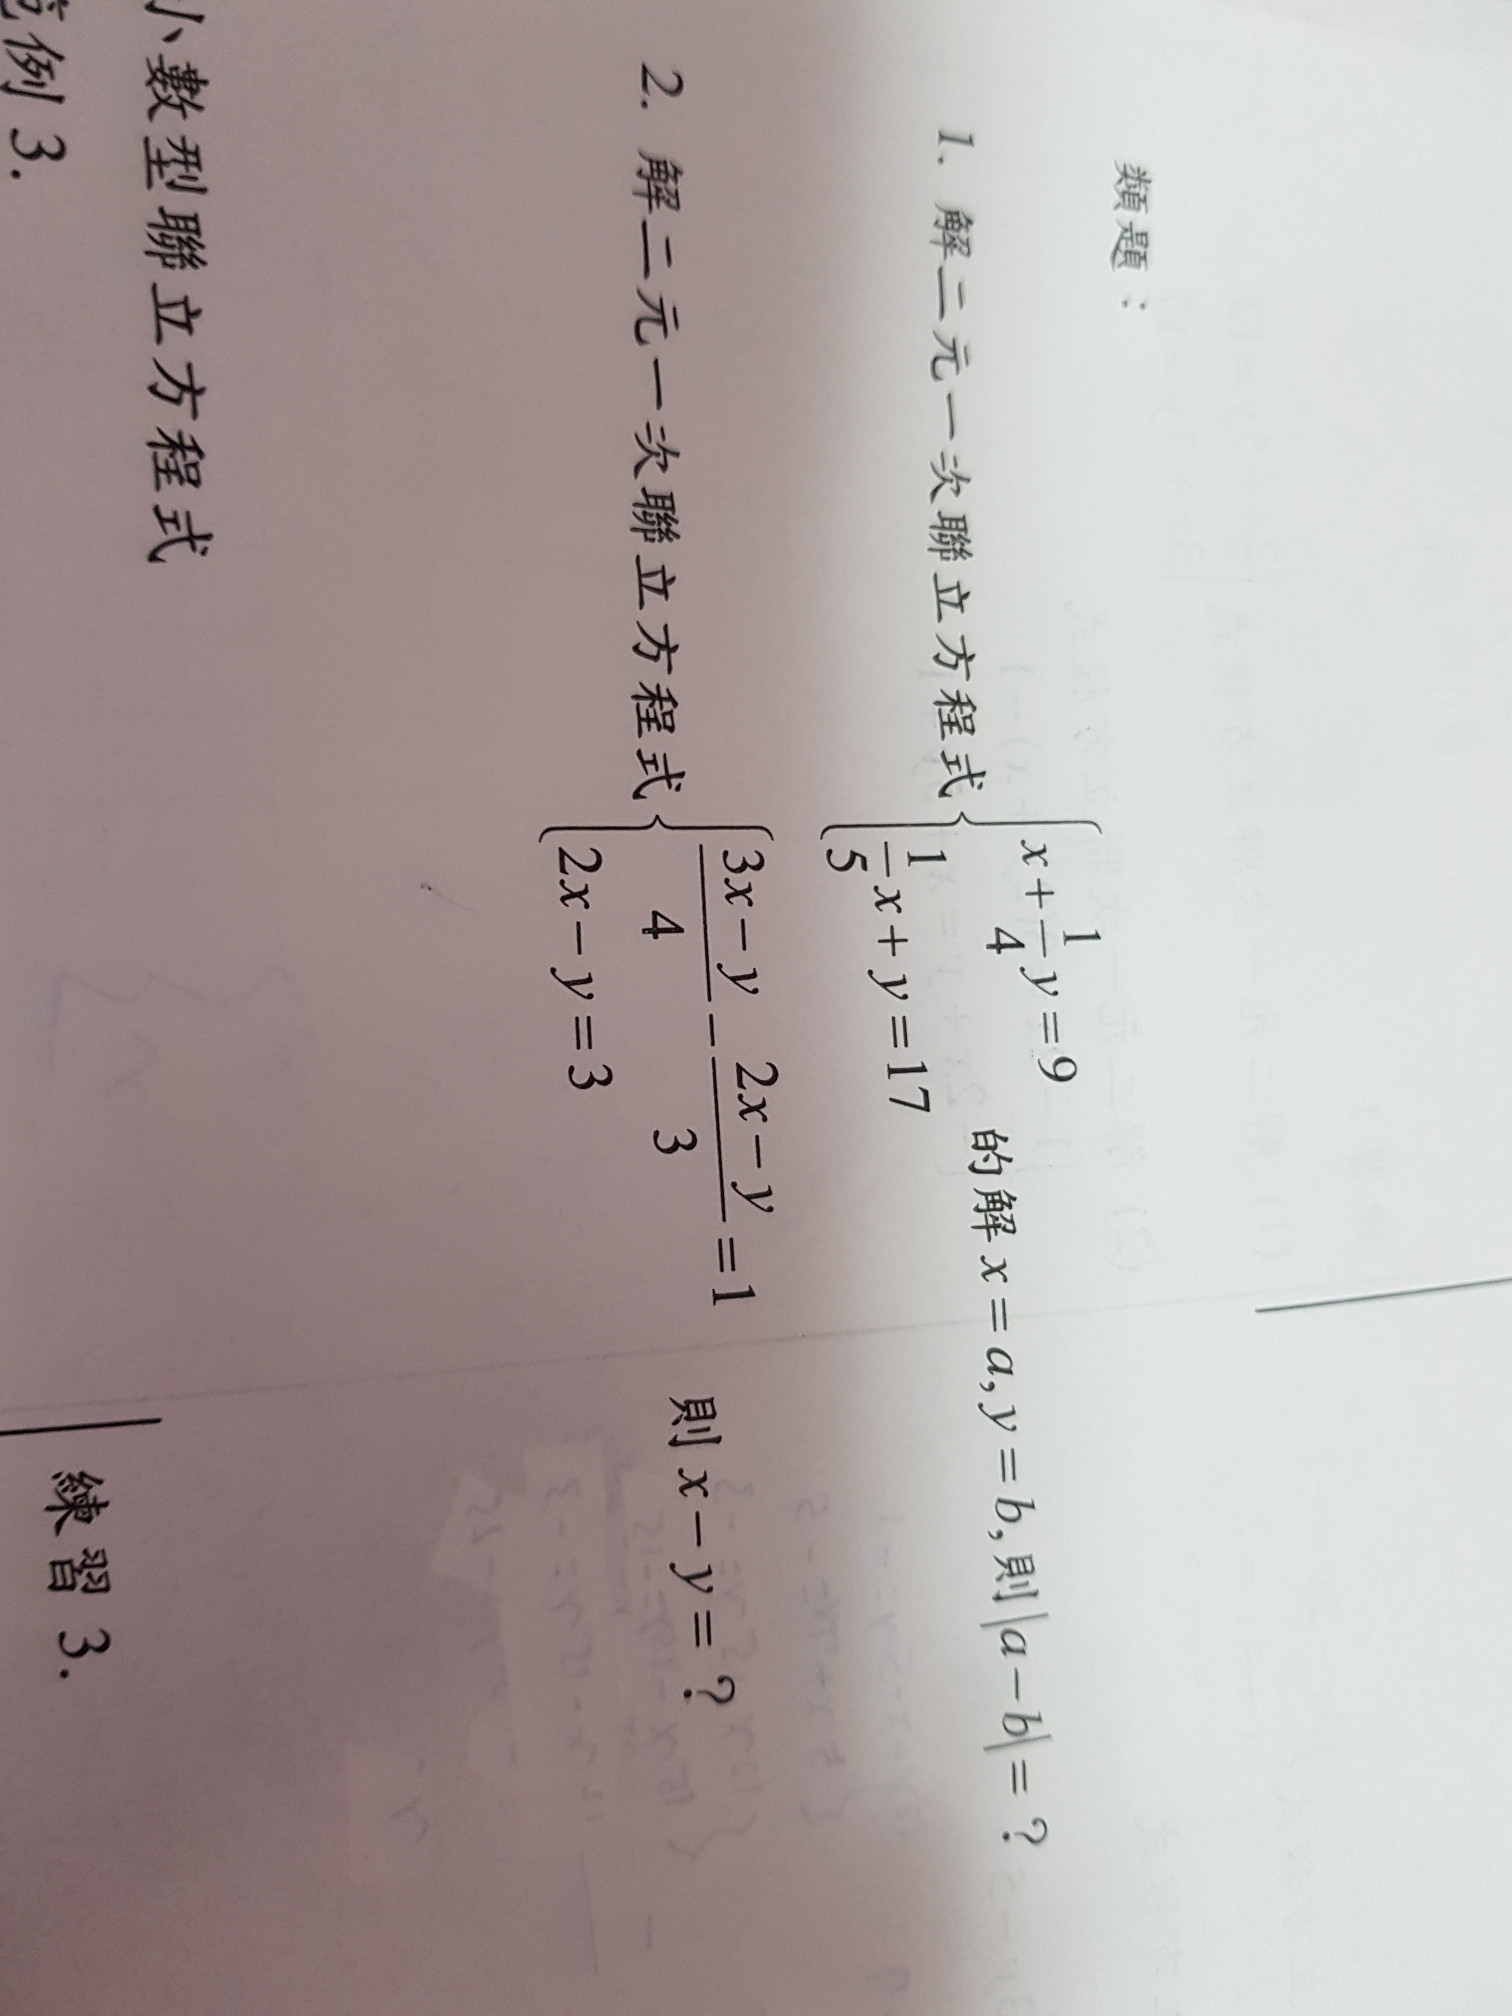 類題：
1. 解二元一次聯立方程式 { x + 1/4 y = 9
1/5 x + y = 17 的解 x = a, y = b, 則 |a − b| = ?
2. 解二元一次聯立方程式 { (3x − y)/4 − (2x − y)/3 = 1
2x − y = 3 則 x − y = ?
小數型聯立方程式
例 3.
練習 3.